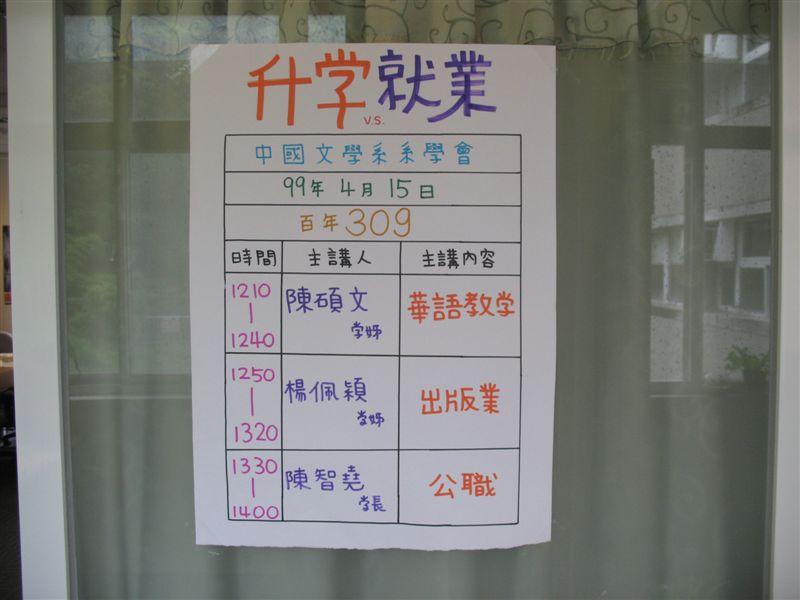 升学就業
v.s.
中國文學系系學會
99年 4月 15日
百年309
時間 主講人 主講內容
1210 | 1240 陳碩文 学姊 華語教学
1250 | 1320 楊佩穎 学姊 出版業
1330 | 1400 陳智堯 学長 公職